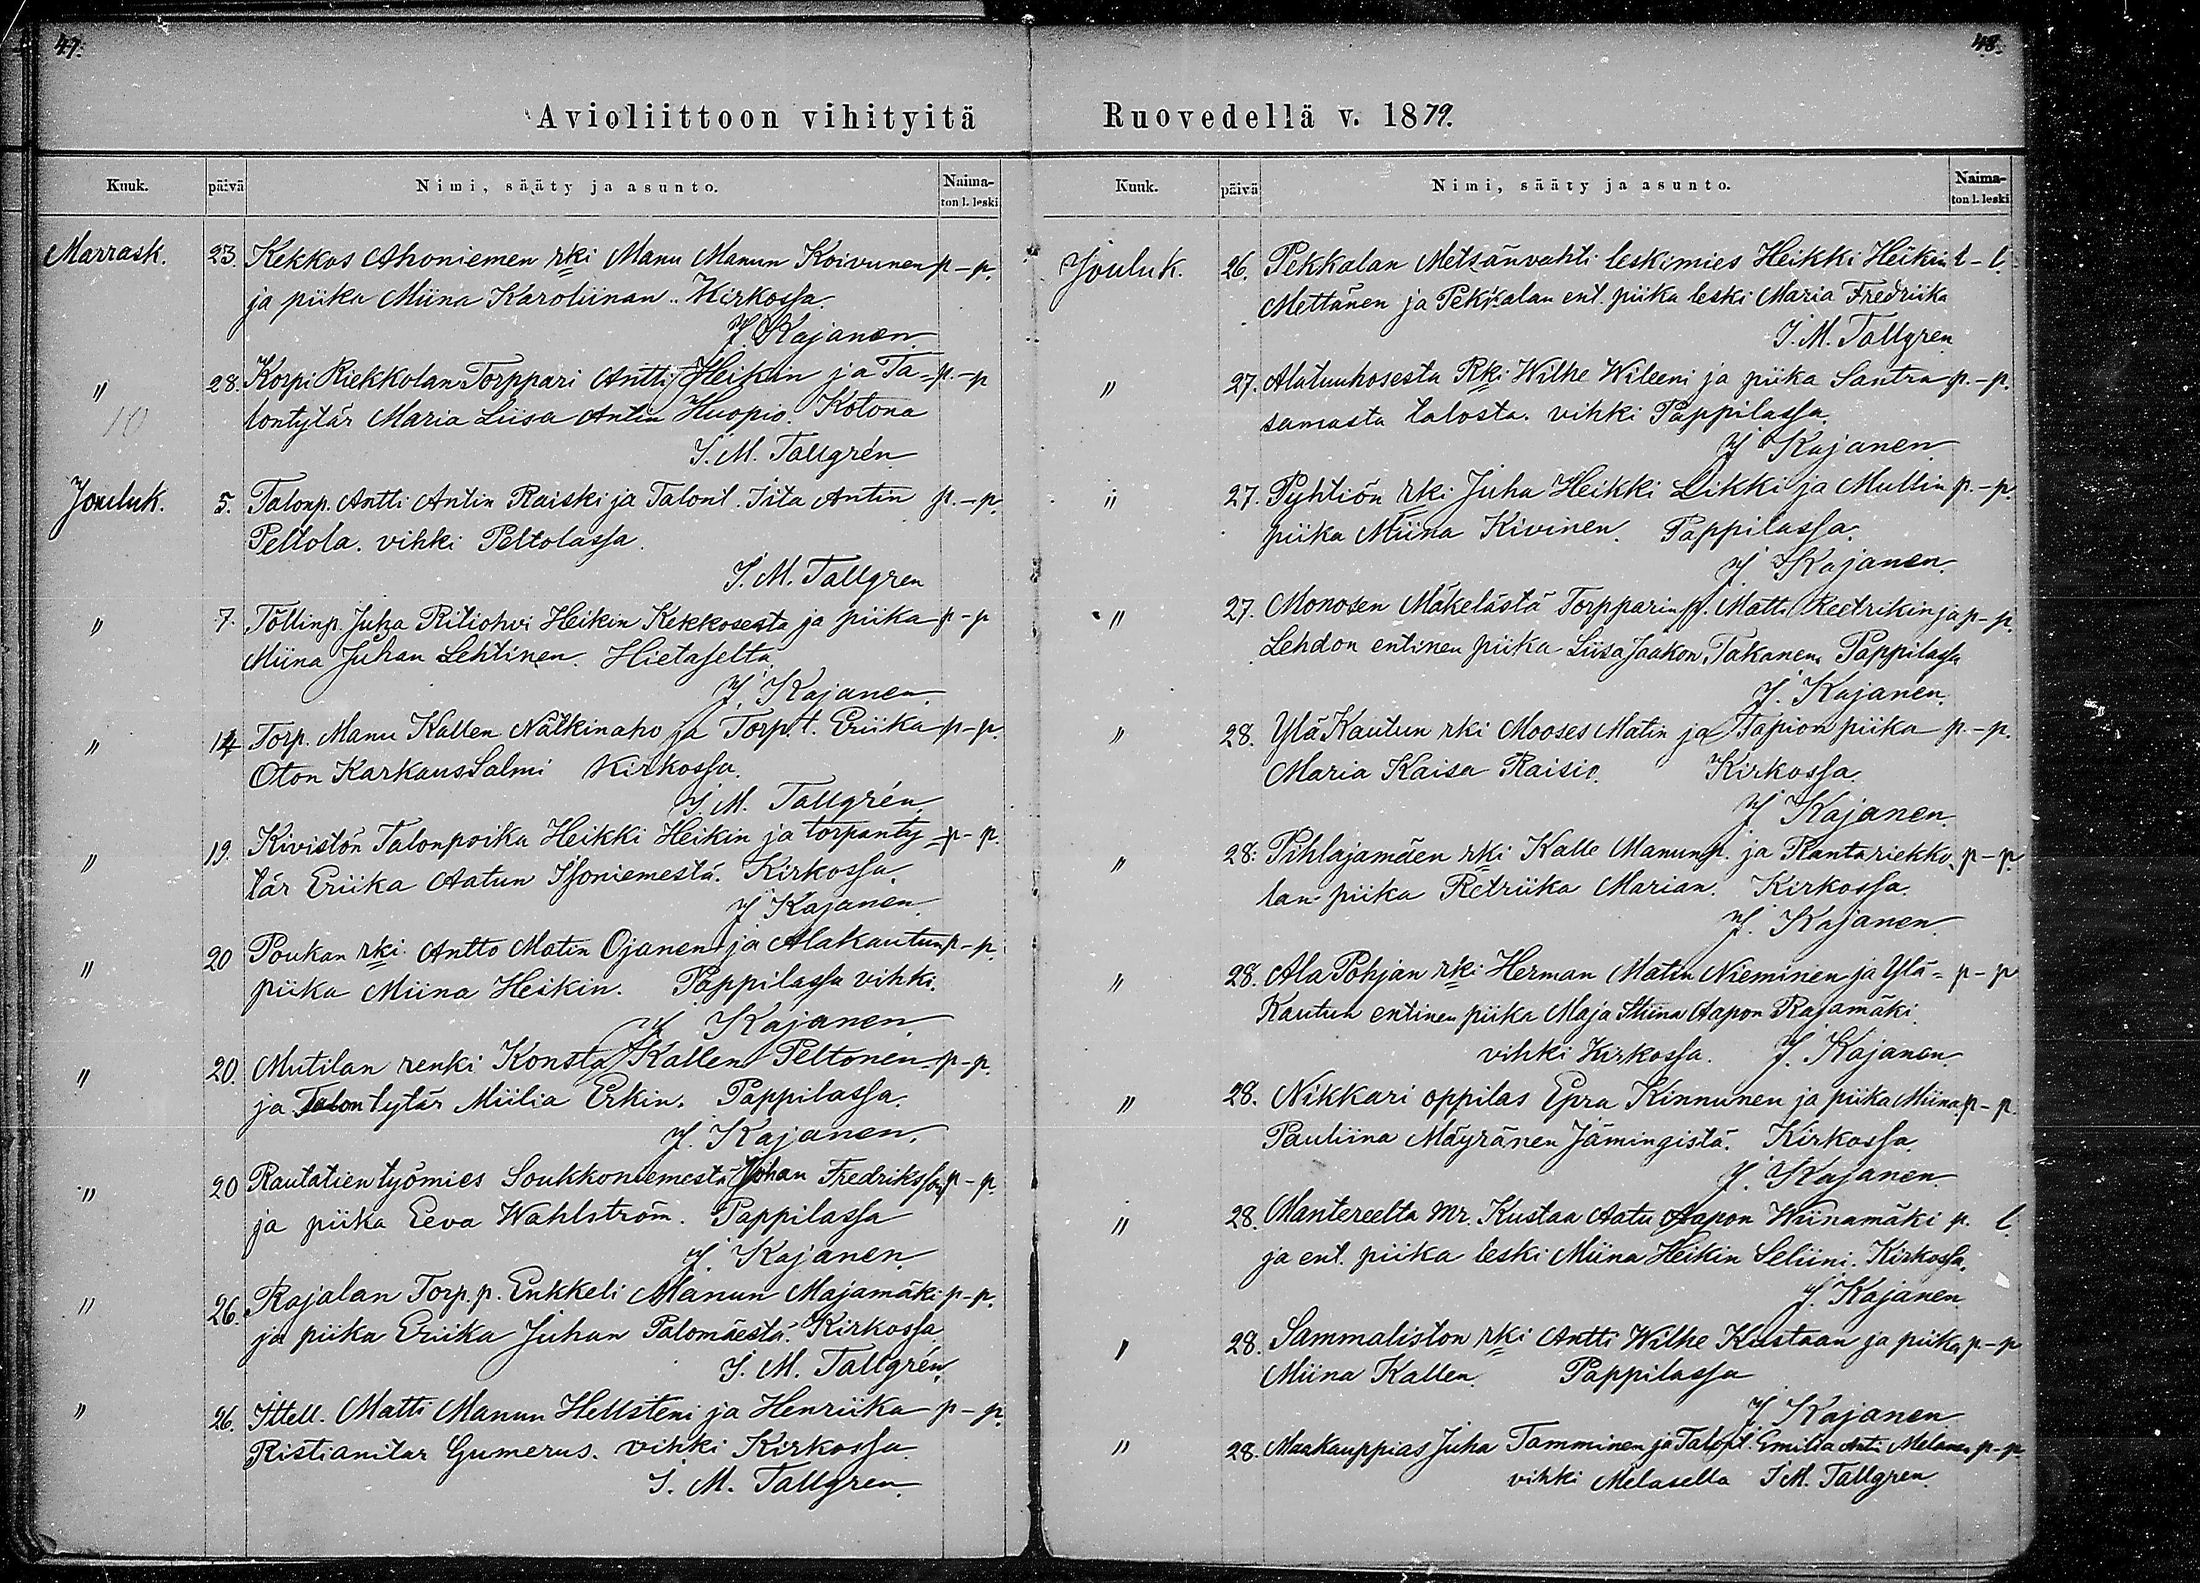 47.
Avioliittoon vihityitä
Kuuk. päivä Nimi, sääty ja asunto. Naima-
ton l. leski
Marrask. 23. Kekkos Ahoniemen rki Manu Manun Koivunen p-p.
ja piika Miina Karoliinan. Kirkossa.
J. Kajanen.
" 28. Korpi Riekkolan Torppari Antti Heikin ja Ta- p.-p
10
lontytär Maria Liisa Antin Huopio. Kotona
I. M. Tallgrén
Jouluk. 5. Talonp. Antti Antin Raiski ja Talont. Iita Antin p.-p.
Peltola. vihki Peltolassa.
I. M. Tallgren
" 7. Töllinp. Juha Ritiohvi Heikin Kekkosesta ja piika p-p
Miina Juhan Lehtinen. Hietaselta
J. Kajanen.
" 14 Torp. Manu Kallen Nätkinaho ja Torp. t. Eriika p-p.
Oton KarkausSalmi Kirkossa.
I. M. Tallgrén.
" 19. Kivistön Talonpoika Heikki Heikin ja torpanty- p-p.
tär Eriika Aatun Isoniemestä. Kirkossa.
J Kajanen.
" 20 Poukan rki Antto Matin Ojanen ja Alakautun p-p.
piika Miina Heikin. Pappilassa vihki.
J Kajanen.
" 20. Mutilan renki Konsta Kallen Peltonen p-p.
ja Talontytär Miilia Erkin. Pappilassa.
J. Kajanen.
" 20 Rautatien työmies Soukkoniemestä Johan Fredriksson p-p.
ja piika Eeva Wahlström. Pappilassa
J. Kajanen.
" 26. Rajalan Torp. p. Enkkeli Manun Majamäki p-p.
ja piika Eriika Juhan Palomäestä. Kirkossa
I. M. Tallgrén.
" 26. Ittell. Matti Manun Hellsteni ja Henriika p-p.
Ristianitar Gumerus. vihki Kirkossa.
I. M. Tallgren.
48.
Ruovedellä v. 1879.
Kuuk. päivä Nimi, sääty ja asunto. Naima-
ton l. leski
Jouluk. 26. Pekkalan Metsänvahti leskimies Heikki Heikin l-l.
Mettänen ja Pekkalan ent. piika leski Maria Fredriika
I. M. Tallgren
" 27. Alatuuhosesta Rki Wilhe Wileeni ja piika Santra p.-p.
samasta talosta. vihki Pappilassa.
J Kajanen
" 27. Pyhtiön rki Juha Heikki Likki ja Mullin p.-p.
piika Miina Kivinen. Pappilassa.
J. Kajanen.
" 27. Monosen Mäkelästä Torpparin p. Matti Reetrikin ja p-p.
Lehdon entinen piika Liisa Jaakon Takanen. Pappilassa
J. Kajanen.
" 28. Ylä Kautun rki Mooses Matin ja Tapion piika p.-p.
Maria Kaisa Raisio. Kirkossa.
J Kajanen.
" 28. Pihlajamäen rki Kalle Manunp. ja Rantariekko- p-p.
lan piika Retriika Marian. Kirkossa.
J. Kajanen.
" 28. Ala Pohjan rki Herman Matin Nieminen ja Ylä- p-p
Kautun entinen piika Maja Stiina Aapon Rajamäki.
vihki Kirkossa. J. Kajanen.
" 28. Nikkari oppilas Epra Kinnunen ja piika Miina p-p.
Pauliina Mäyränen Jämingistä. Kirkossa.
J. Kajanen
" 28. Mantereelta Mr. Kustaa Aatu Aapon Wiinamäki p. l.
ja ent. piika leski Miina Heikin Seliini. Kirkossa.
J. Kajanen
" 28. Sammaliston rki Antti Wilhe Kustaan ja piika p-p
Miina Kallen. Pappilassa
J Kajanen
" 28. Maakauppias Juha Tamminen ja Talont. Emilia Anti Melanen p-p.
vihki Melasella I M. Tallgren.